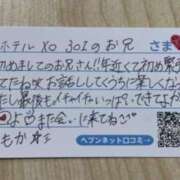 ホテル XO 301のお兄さま
めましてのお兄さん!!年近くて初め緊
てたね笑お話ししてくうちに楽しくなっ
し最後もイチャイチャいっぱいできてよか
♡よ また会いに来てね♡
もか
ヘブンネット口コミ→